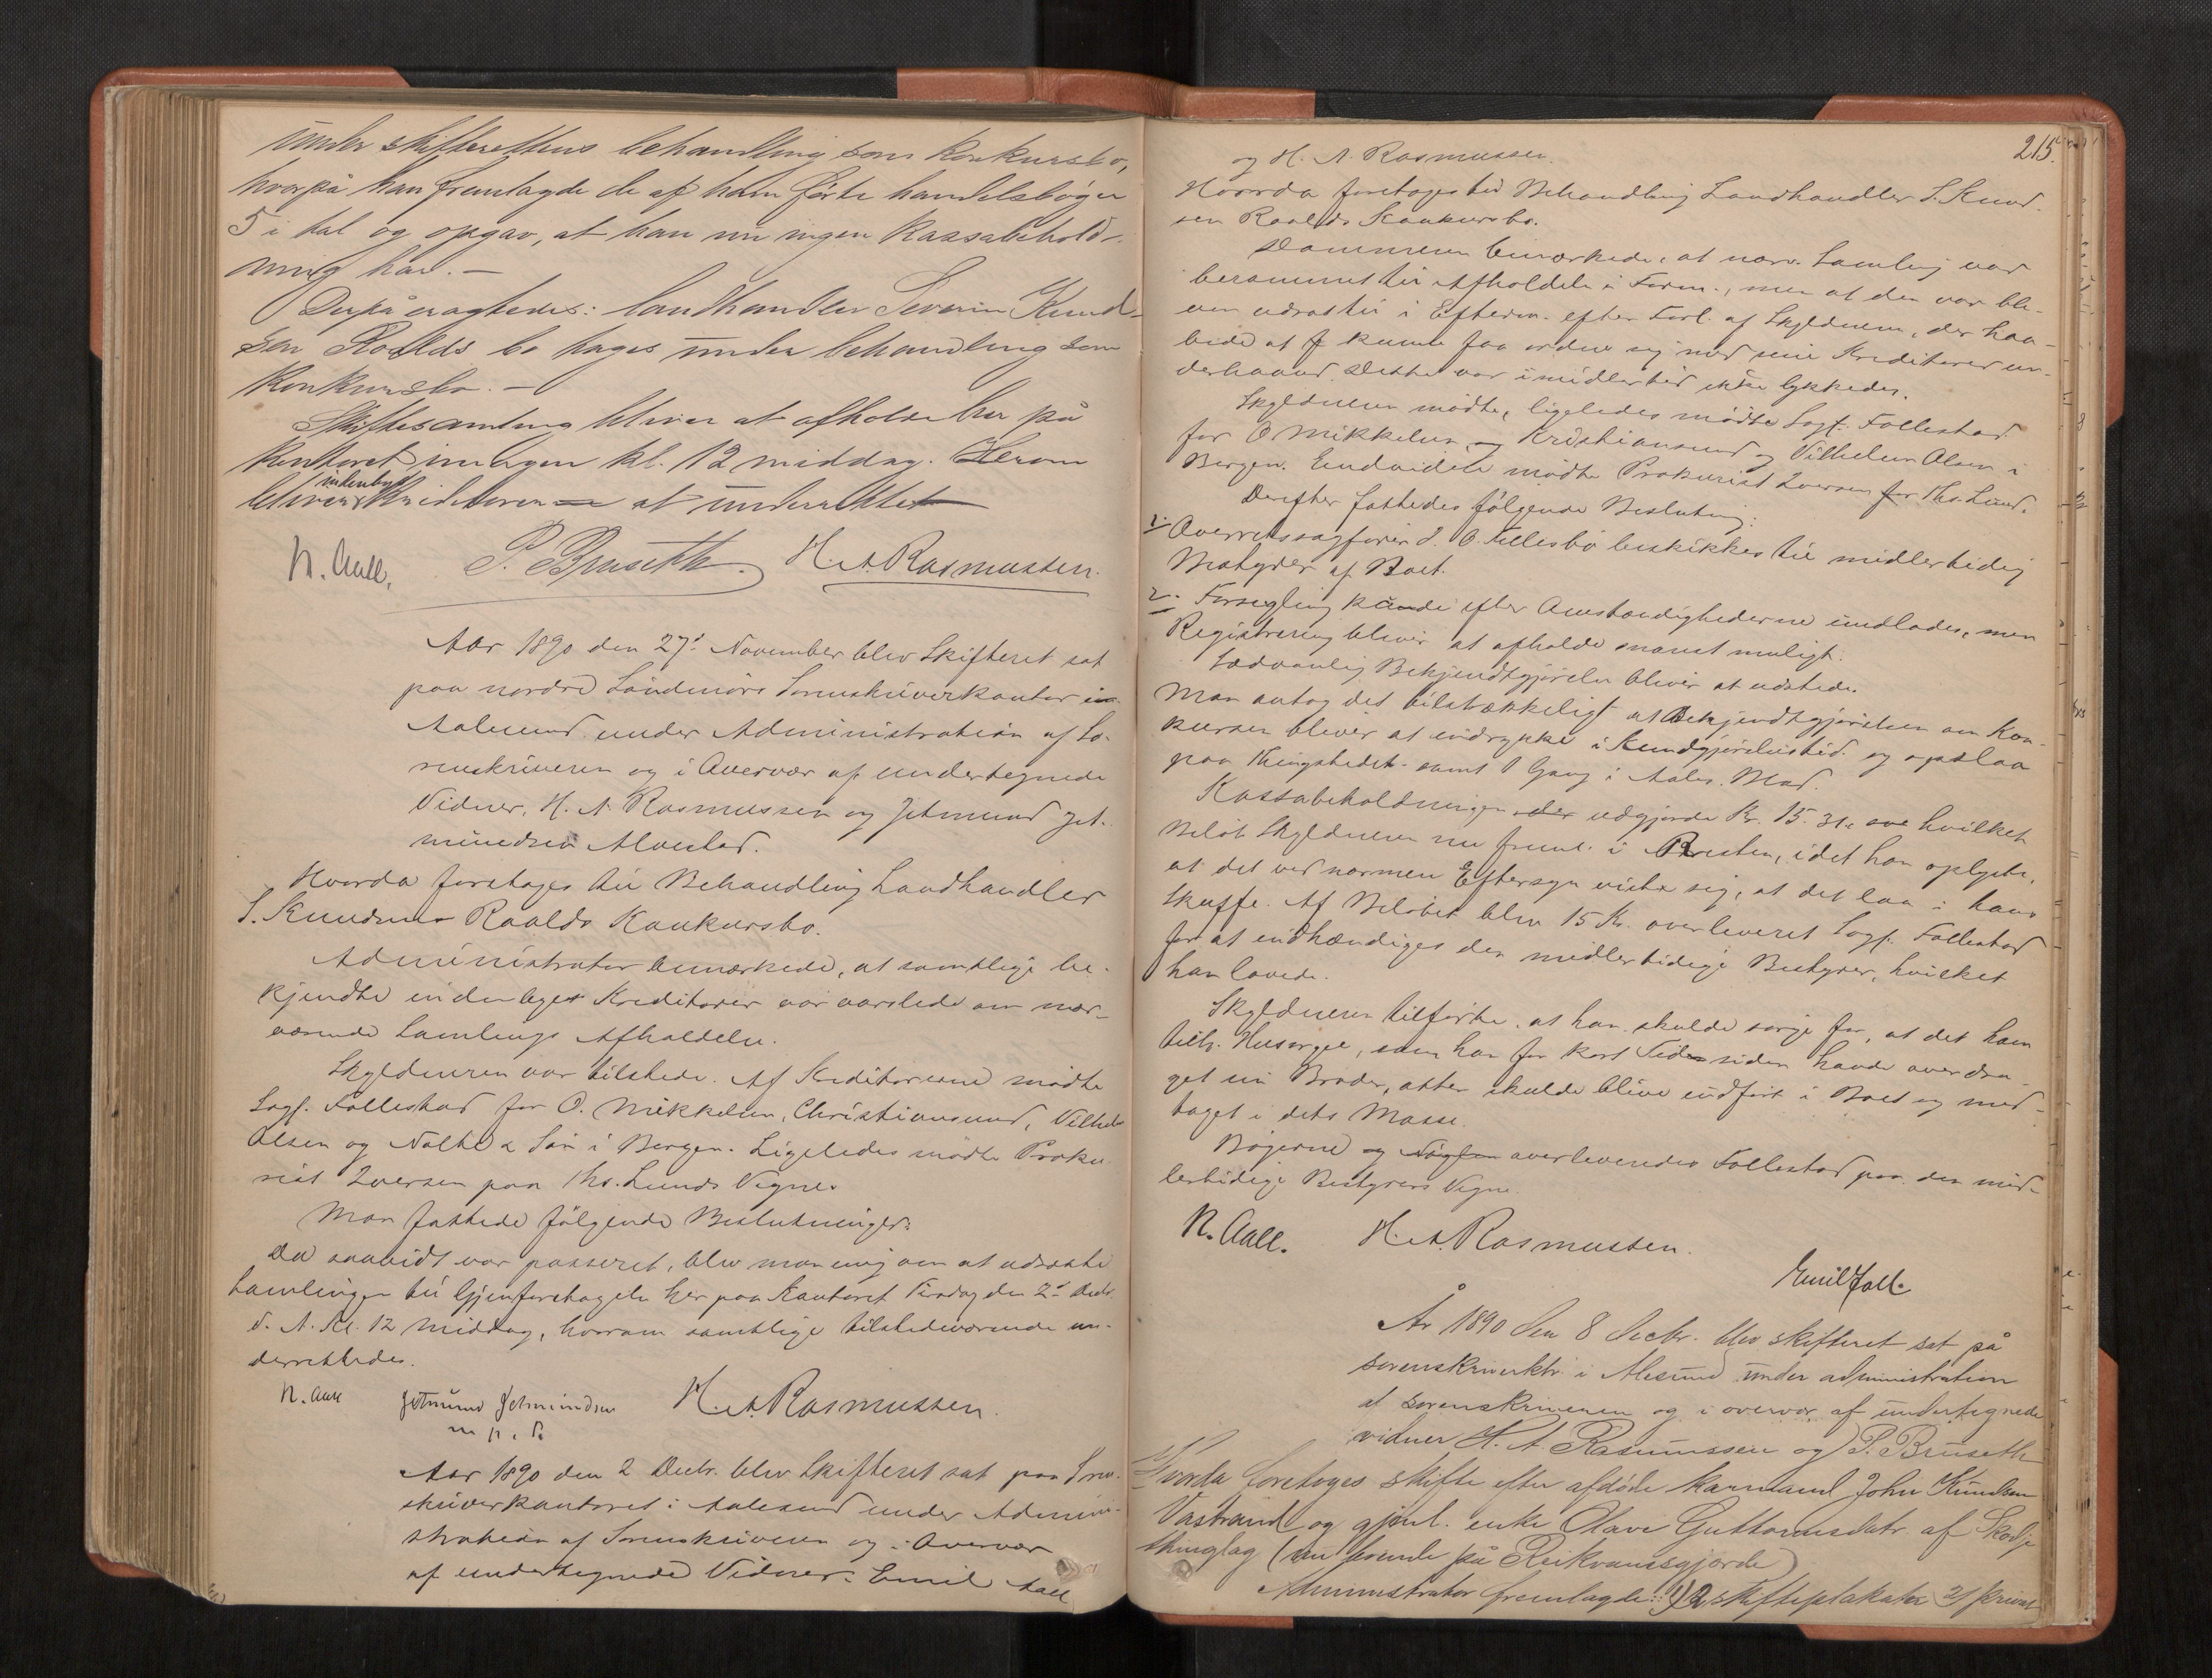 under skifterettens behandling som konkursbo,
hvorpå han fremlagde de af ham førte handelsbøger
5 i tal og opgav, at han nu ingen Kassabehold-
ning har. —
Derpå eragtedes: landhandler Severin Knud-
sen Roalds bo tages under behandling som
konkursbo. —
Skiftesamling bliver at afholde her på
kontoret imorgen kl. 12 middag. Herom
indenbys
bliver kreditorerne at underrettet
N. Aall. P. Bruseth. H. A. Rasmussen.
Aar 1890 den 27de November blev Skifteret sat
paa nordre Søndmørs Sorenskriverkontor i
Aalesund under Administration af So-
renskriveren og i Overvær af undertegnede
Vidner, H. A. Rasmussen og Jetmund Jet-
mundsen Alvestad.
Hvorda foretoges til Behandling Landhandler
S. Knudsen Roalds Konkursbo.
Administrator bemærkede, at samtlige be-
kjendte indenbyes Kreditorer var varslede om nær-
værende Samlings Afholdelse.
Skyldneren var tilstede. Af Kreditorerne mødte
Sagf. Follestad for O. Mikkelsen, Christiansund, Vilhelm
Olsen og Nolte & Søn i Bergen. Ligeledes mødte Proku-
rist Iversen paa Ths. Lunds Vegne.
Man fattede følgende Beslutninger:
Da saavidt var passeret, blev man enig om at udsætte
Samlingen til Gjenforetagelse her paa Kontoret Tirsdag den 2den Decbr.
d. A. Kl. 12 Middag, hvorom samtlige tilstedeværende un-
derrettedes.
N. Aall Jetmund Jetmundsen H. A. Rasmussen.
m. p. P.
Aar 1890 den 2 Decbr. blev Skifteret sat paa Sorn-
skriverkontoret i Aalesund under Admini-
stration af Sorenskriveren og i Overvær
af undertegnede Vidner: Emil Aall
215.
og H. A. Rasmussen.
Hvorda foretoges til Behandling Landhandler S. Knud-
sen Roalds Konkursbo.
Dommeren bemærkede, at nærv. Samling var
berammet til Afholdelse i Form., men at den var ble-
ven udsat til i Efterm. efter Forl. af Skyldneren, der haa-
bede at kunne faa ordne sig med sine Kreditorer un-
derhaand. Dette var imidlertid ikke lykkedes.
Skyldneren mødte, ligeledes mødte Sagf. Follestad
for O Mikkelsen og Kristiansund og Vilhelm Olsen i
Bergen. Endvidere mødte Prokurist Iversen for Ths. Lund.
Derefter fattedes følgende Beslutning:
1. Overretssagfører J. O. Tellesbø beskikkes til midlertidig
Bestyrer af Boet.
2. Forsegling kunde efter Omstændighederne undlades, men
Registrering bliver at afholde snarest muligt.
Sædvanlig Bekjendtgjørelse bliver at udstede.
Man antog det tilstrækkeligt at Bekjendtgjørelsen om Kon-
kursen bliver at indrykke i Kundgjørelsestid. og opslaa
paa Thingstedet samt 1 Gang i Aales. Blad.
Kassabeholdningen udgjorde Kr. 15.31, hvilket
Beløb Skyldneren nu freml. i Retten, idet han oplyste,
at det ved nærmere Eftersyn viste sig, at det laa i hans
Skuffe. Af Beløbet blev 15 Kr. overleveret Sagf. Follestad
for at indhændiges den midlertidige Bestyrer, hvilket
han lovede.
Skyldneren tilførte, at han skulde sørge for, at det ham
tilh. Husorgel, som han for kort Tid siden havde overdra-
get sin Broder, atter skulde blive indført i Boet og med-
taget i dets Masse.
Bøgerne og Nøglen overleveredes Follestad paa den mid-
lertidige Bestyrers Vegne.
N. Aall. H. A. Rasmussen.
Emil Aall.
År 1890 den 8 decbr. blev skifteret sat på
sorenskriverktr. i Ålesund under administration
af sorenskriveren og i overvær af undertegnede
vidner H. A. Rasmussen og P. Bruseth
Hvorda foretoges skifte efter afdøde kårmand John Knudsen
Vastrand og gjenl. enke Olave Guttormsdatr. af Skodje
thinglag (nu boende på Reikvamsgjærde)
Administrator fremlagde: 1) 2 skifteplakater 2) privat